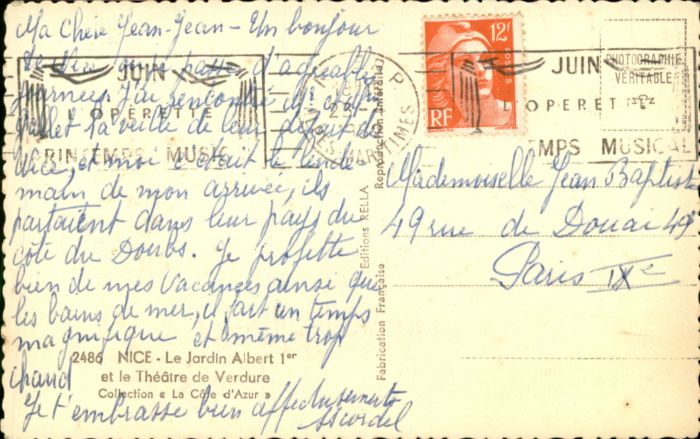 Ma Chère Jean-Jean - Un bonjour
de Nice où je passe d'agréables
journées. J'ai rencontré
la veille de leur départ de
Nice, et moi c'était le lende
main de mon arrivée, ils
partaient dans leur pays du
côté du Doubs. Je profite
bien de mes vacances ainsi que
les bains de mer, il fait un temps
magnifique et même trop
chaud
Je t'embrasse bien affectueusement
2486 NICE - Le Jardin Albert 1er
et le Théâtre de Verdure
Collection « La Côte d'Azur »
Fabrication Française
Editions RELLA
Reproduction interdite
JUIN
L'OPERETTE
PRINTEMPS MUSICAL
MARITIMES
12F
POSTES
RF
JUIN
L'OPERETTE
TEMPS MUSICAL
PHOTOGRAPHIE
VÉRITABLE
Mademoiselle Jean Baptist
49 rue de Douai 49
Paris IXe